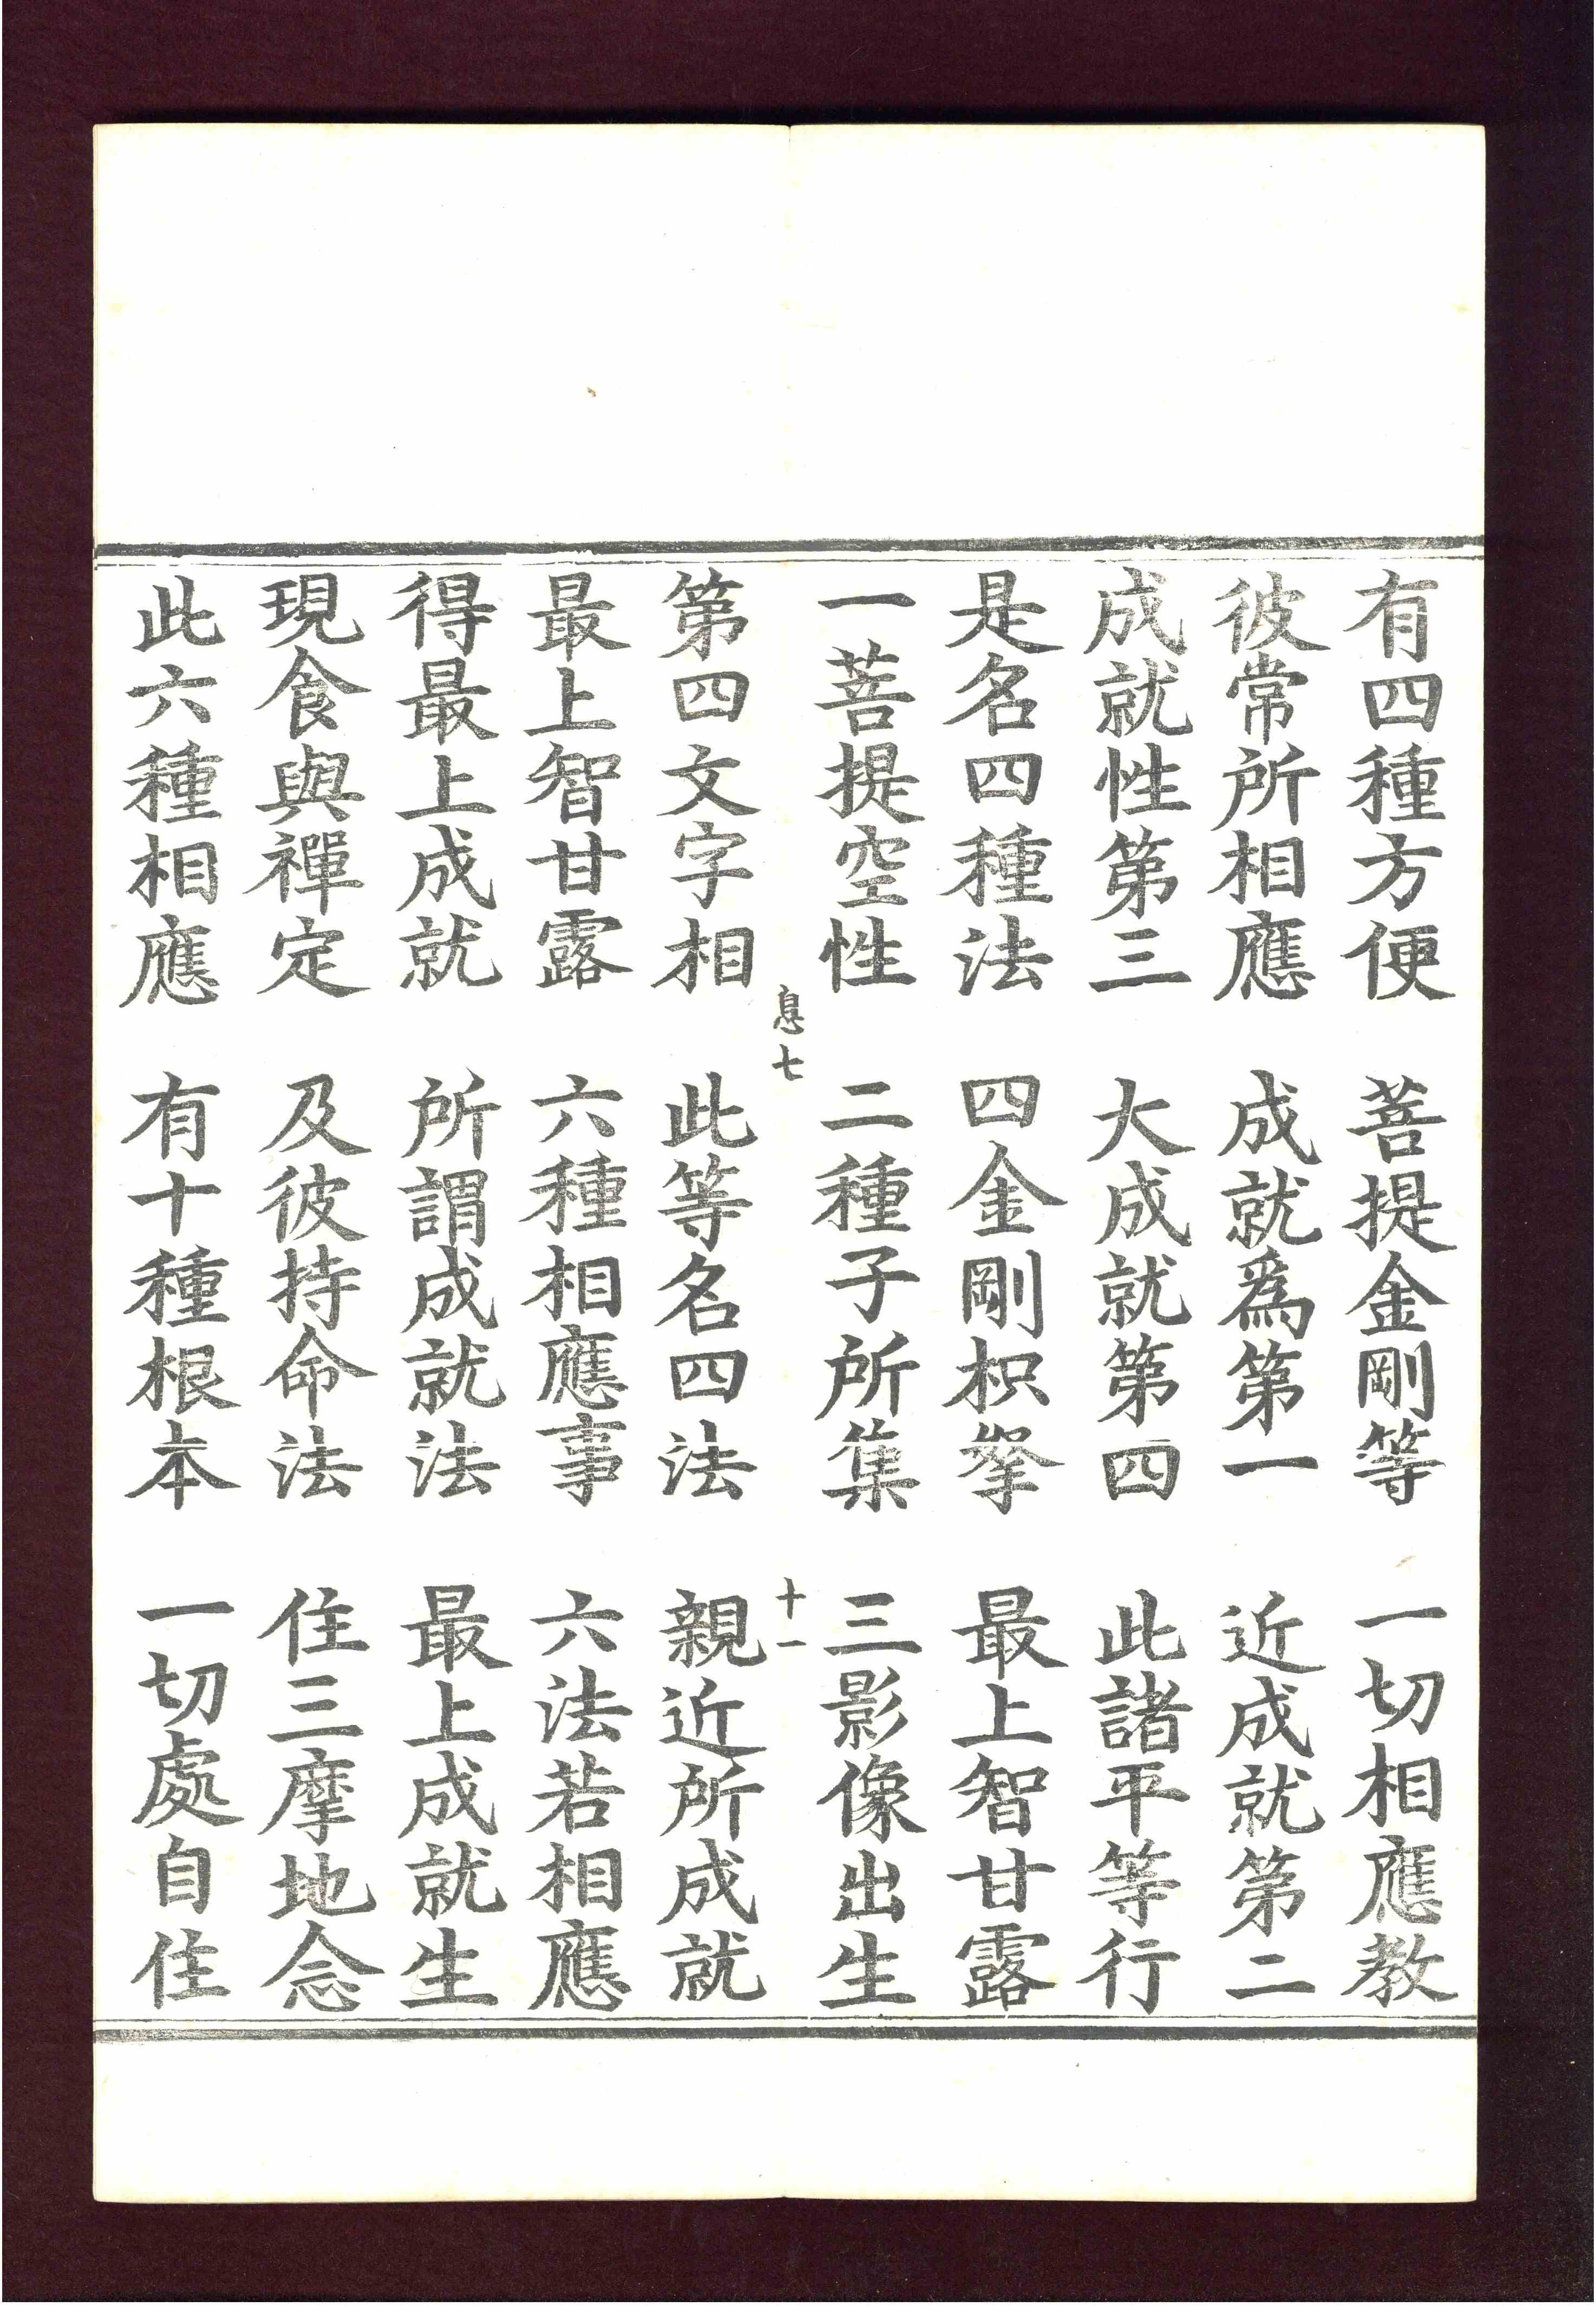 有四種方便　菩提金剛等　一切相應教
彼常所相應　成就爲第一　近成就第二
成就性第三　大成就第四　此諸平等行
是名四種法　四金剛枳拏　最上智甘露
一菩提空性　二種子所集　三影像出生
息七　十一
第四文字相　此等名四法　親近所成就
最上智甘露　六種相應事　六法若相應
得最上成就　所謂成就法　最上成就生
現食與禪定　及彼持命法　住三摩地念
此六種相應　有十種根本　一切處自住